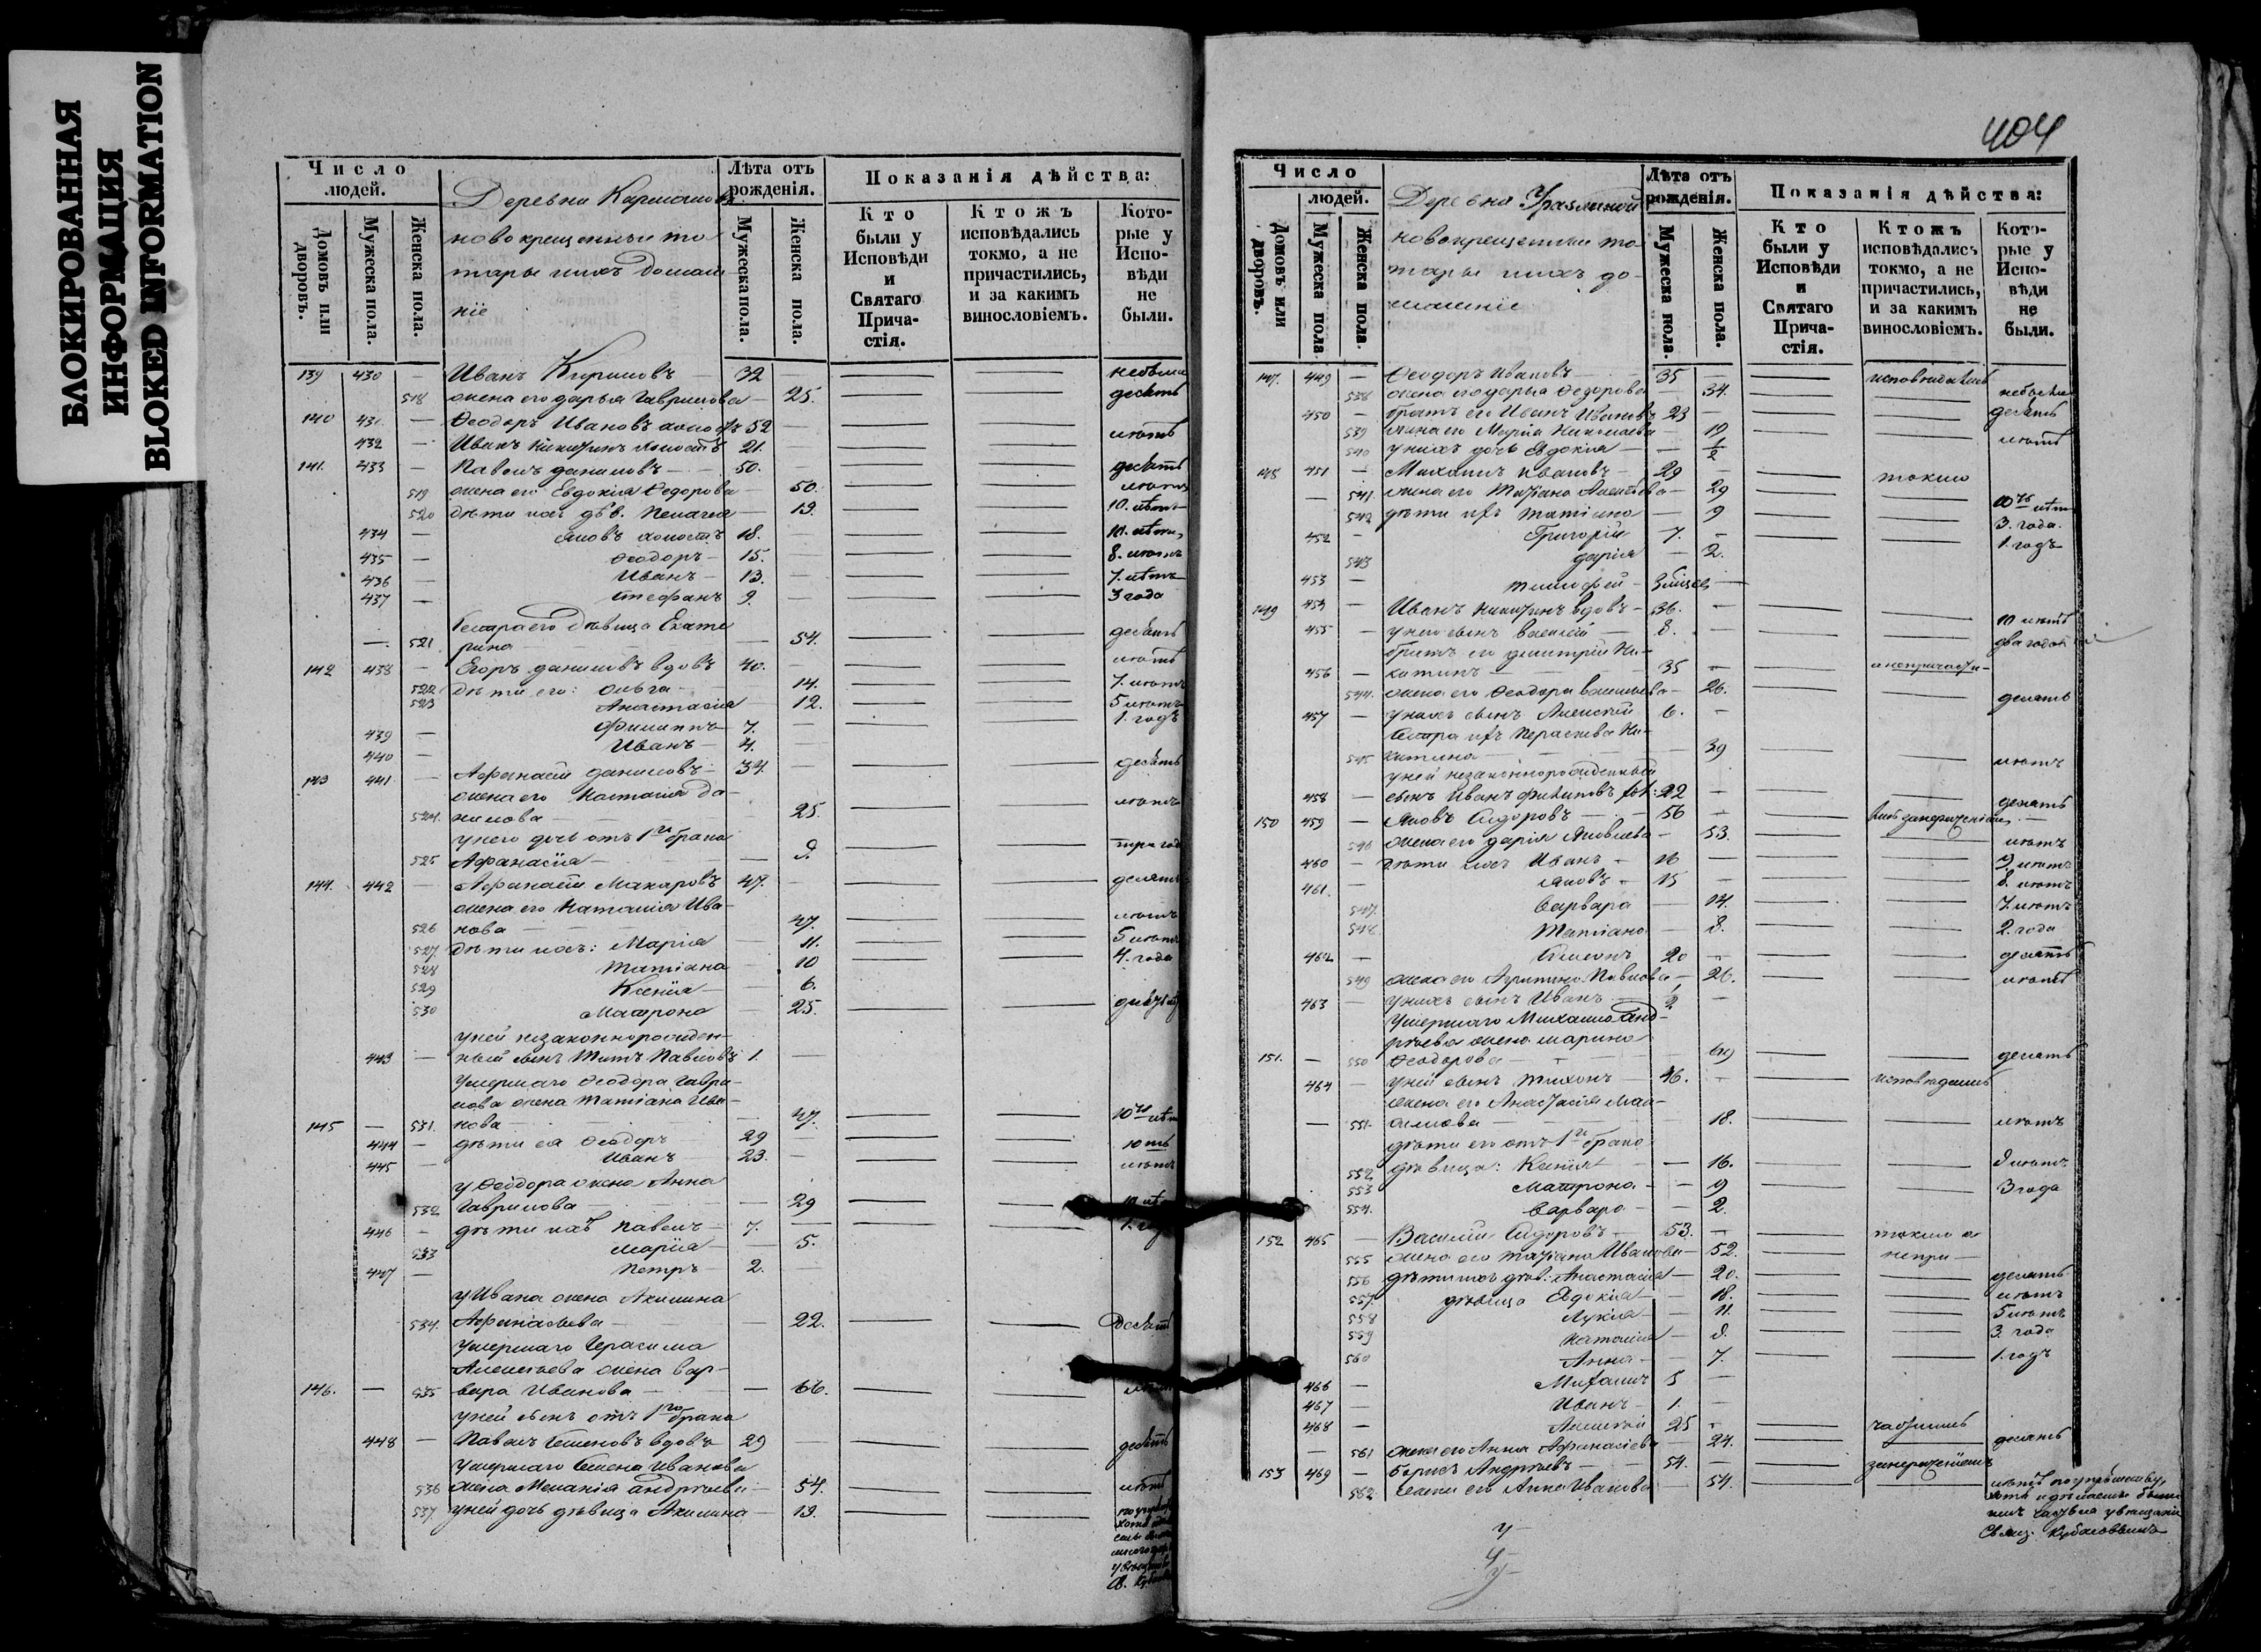 БЛОКИРОВАННАЯ
ИНФОРМАЦИЯ
BLOKED INFORMATION
Число людей.
Домовъ или дворовъ.
Мужеска пола.
Женска пола.
Деревни
новокрещенные та
тары ихъ домаш
ніе
Лѣта отъ рожденія.
Мужеска пола.
Женска пола.
Показанія дѣйства:
Кто были у Исповѣди и Святаго Причастія.
Ктожъ исповѣдались токмо, а не причастились, и за какимъ винословіемъ.
Которые у Исповѣди не были.
139 430 — Иванъ Кириловъ — 32 — небыли
518 жена его Дарья Гаврилова — 25. десять
140 431 — Ѳеодоръ Ивановъ холостъ 52
432 — Иванъ Никитинъ холостъ 21. лѣтъ
141. 433 — Павелъ Даниловъ — 50. десять
519 жена его Евдокія Ѳедорова — 50. лѣтъ
520 дѣти ихъ дѣв. Пелагея — 19. 10. лѣтъ
434 — Яковъ холостъ 18. 10. лѣтъ
435 — Ѳеодоръ — 15. 8. лѣтъ
436 — Иванъ — 13. 7. лѣтъ
437 — Стефанъ 9. 3 года
Сестра его дѣвица Екате
521 рина — 54. десять
142 438 — Егоръ Даниловъ вдовъ 40. лѣтъ
522 дѣти его: Ольга — 14. 7. лѣтъ
523 Анастасія 12. 5 лѣтъ
439 — Филиппъ 7. 1. годъ
440 — Иванъ — 4.
143 441 — Аѳанасій Даниловъ — 34. десять
жена его Наталія Да-
524. нилова — 25. лѣтъ
у него дочь отъ 1го брака
525 Аѳанасія — 9. три год
144. 442 — Аѳанасій Макаровъ 47. десять
жена его Наталія Ива-
526 нова — 47. лѣтъ
527. дѣти ихъ: Марія — 11. 5 лѣтъ
528 Татіана 10 4. года
529 Ксенія — 6.
530 Матрона — 25.
у ней незаконнорожден-
443 — ный сынъ Титъ Павловъ 1. —
Умершаго Ѳеодора Гаври-
лова жена Татіана Ива-
145 — 531. нова — 47. 10ть лѣт
444 — дѣти ея Ѳеодоръ 29 10ть
445 — Иванъ 23. лѣтъ
у Ѳеодора жена Анна
532 Гаврилова — 29
446 — дѣти ихъ Павелъ — 7.
533 Марія — 5.
447 — Петръ — 2.
у Ивана жена Акилина
534. Аѳанасьева — 22. Десять
Умершаго Герасима
Алексѣева жена Вар-
146. — 535 вара Иванова — 66.
у ней сынъ отъ 1го брака
448 — Павелъ Семеновъ вдовъ 29 десять
Умершаго Семена Иванова
536 жена Меланія Андреева — 54. лѣтъ
537 у ней дочь дѣвица Акилина — 19.
404
Число людей.
Домовъ или дворовъ.
Мужеска пола
Женска пола.
Деревни
новокрещенные та
тары ихъ до-
машніе
Лѣта отъ рожденія.
Мужеска пола.
Женска пола.
Показанія дѣйства:
Кто были у Исповѣди и Святаго Причастія.
Ктожъ исповѣдались токмо, а не причастились, и за какимъ винословіемъ.
Которые у Исповѣди не были.
147. 449 — Ѳеодоръ Ивановъ — 35 — исповѣдались
538 жена его Дарья Ѳедорова — 34. небыли
450 — братъ его Иванъ Ивановъ 23 — десять
539 жена его Марія Николаева 19 лѣтъ
540 у нихъ дочь Евдокія — 1/2
148 451 — Михаилъ Ивановъ — 29 — токмо
541. жена его Татіана Алексѣева — 29 10ть лѣтъ
542 дѣти ихъ Татіана — 9 3. года.
452 — Григорій 7. — 1. годъ
543 Дарія — 2.
453 — Тимофей —
149 454 — Иванъ Никитинъ вдовъ — 36. — 10 лѣтъ
455 — у него сынъ Василій — 8. — два года
братъ его Димитрій Ни-
456 — китинъ — 35 — а непричасти-
544. жена его Ѳеодора Васильева — 26. десять
457 — у нихъ сынъ Алексѣй 6. —
Сестра ихъ Параскева Ни-
545 китина — 39 лѣтъ
у ней незаконнорожденный
458 — сынъ Иванъ Филиповъ хол: 22 — десять
150 459 — Яковъ Сидоровъ — 56 —
546 жена его Дарія Яковлева — 53. лѣтъ
460 — дѣти ихъ Иванъ — 16 — 9 лѣтъ
461. — Яковъ — 15 — 8. лѣтъ
547. Варвара — 14. 7 лѣтъ
548 Татіана — 8. 2. года
462 — Симеонъ 20 — десять
549 жена его Акулина Павлова — 26. лѣтъ
463 — у нихъ сынъ Иванъ — 2 —
Умершаго Михаила Анд-
реева жена Марина
151. — 550 Ѳеодорова — 69 десять
464 — у ней сынъ Тихонъ — 46. — исповѣдались
жена его Анастасія Мак-
— 551. симова — 18. лѣтъ
дѣти его отъ 1го брака
552 дѣвица: Ксенія — 16. 9 лѣтъ
553 Матрона — 9 3 года
554. Варвара — 2.
152 465 — Василій Сидоровъ — 53. — токмо а
555 жена его Татіана Иванова — 52. непри —
556 дѣти ихъ дѣв: Анастасія — 20. десять
557. дѣвица Евдокія — 18. лѣтъ
558 Лукія — 11. 5 лѣтъ
559 Наталія — 9. 3. года
560 Анна — 7. 1. годъ
466 — Михаилъ 5 —
467 — Иванъ — 1. —
468 — Алексѣй 25 —
— 561 жена его Анна Аѳанасіева — 24. десять
153 469 — Борисъ Андреевъ — 54. —
562 жена его Анна Иванова — 54.